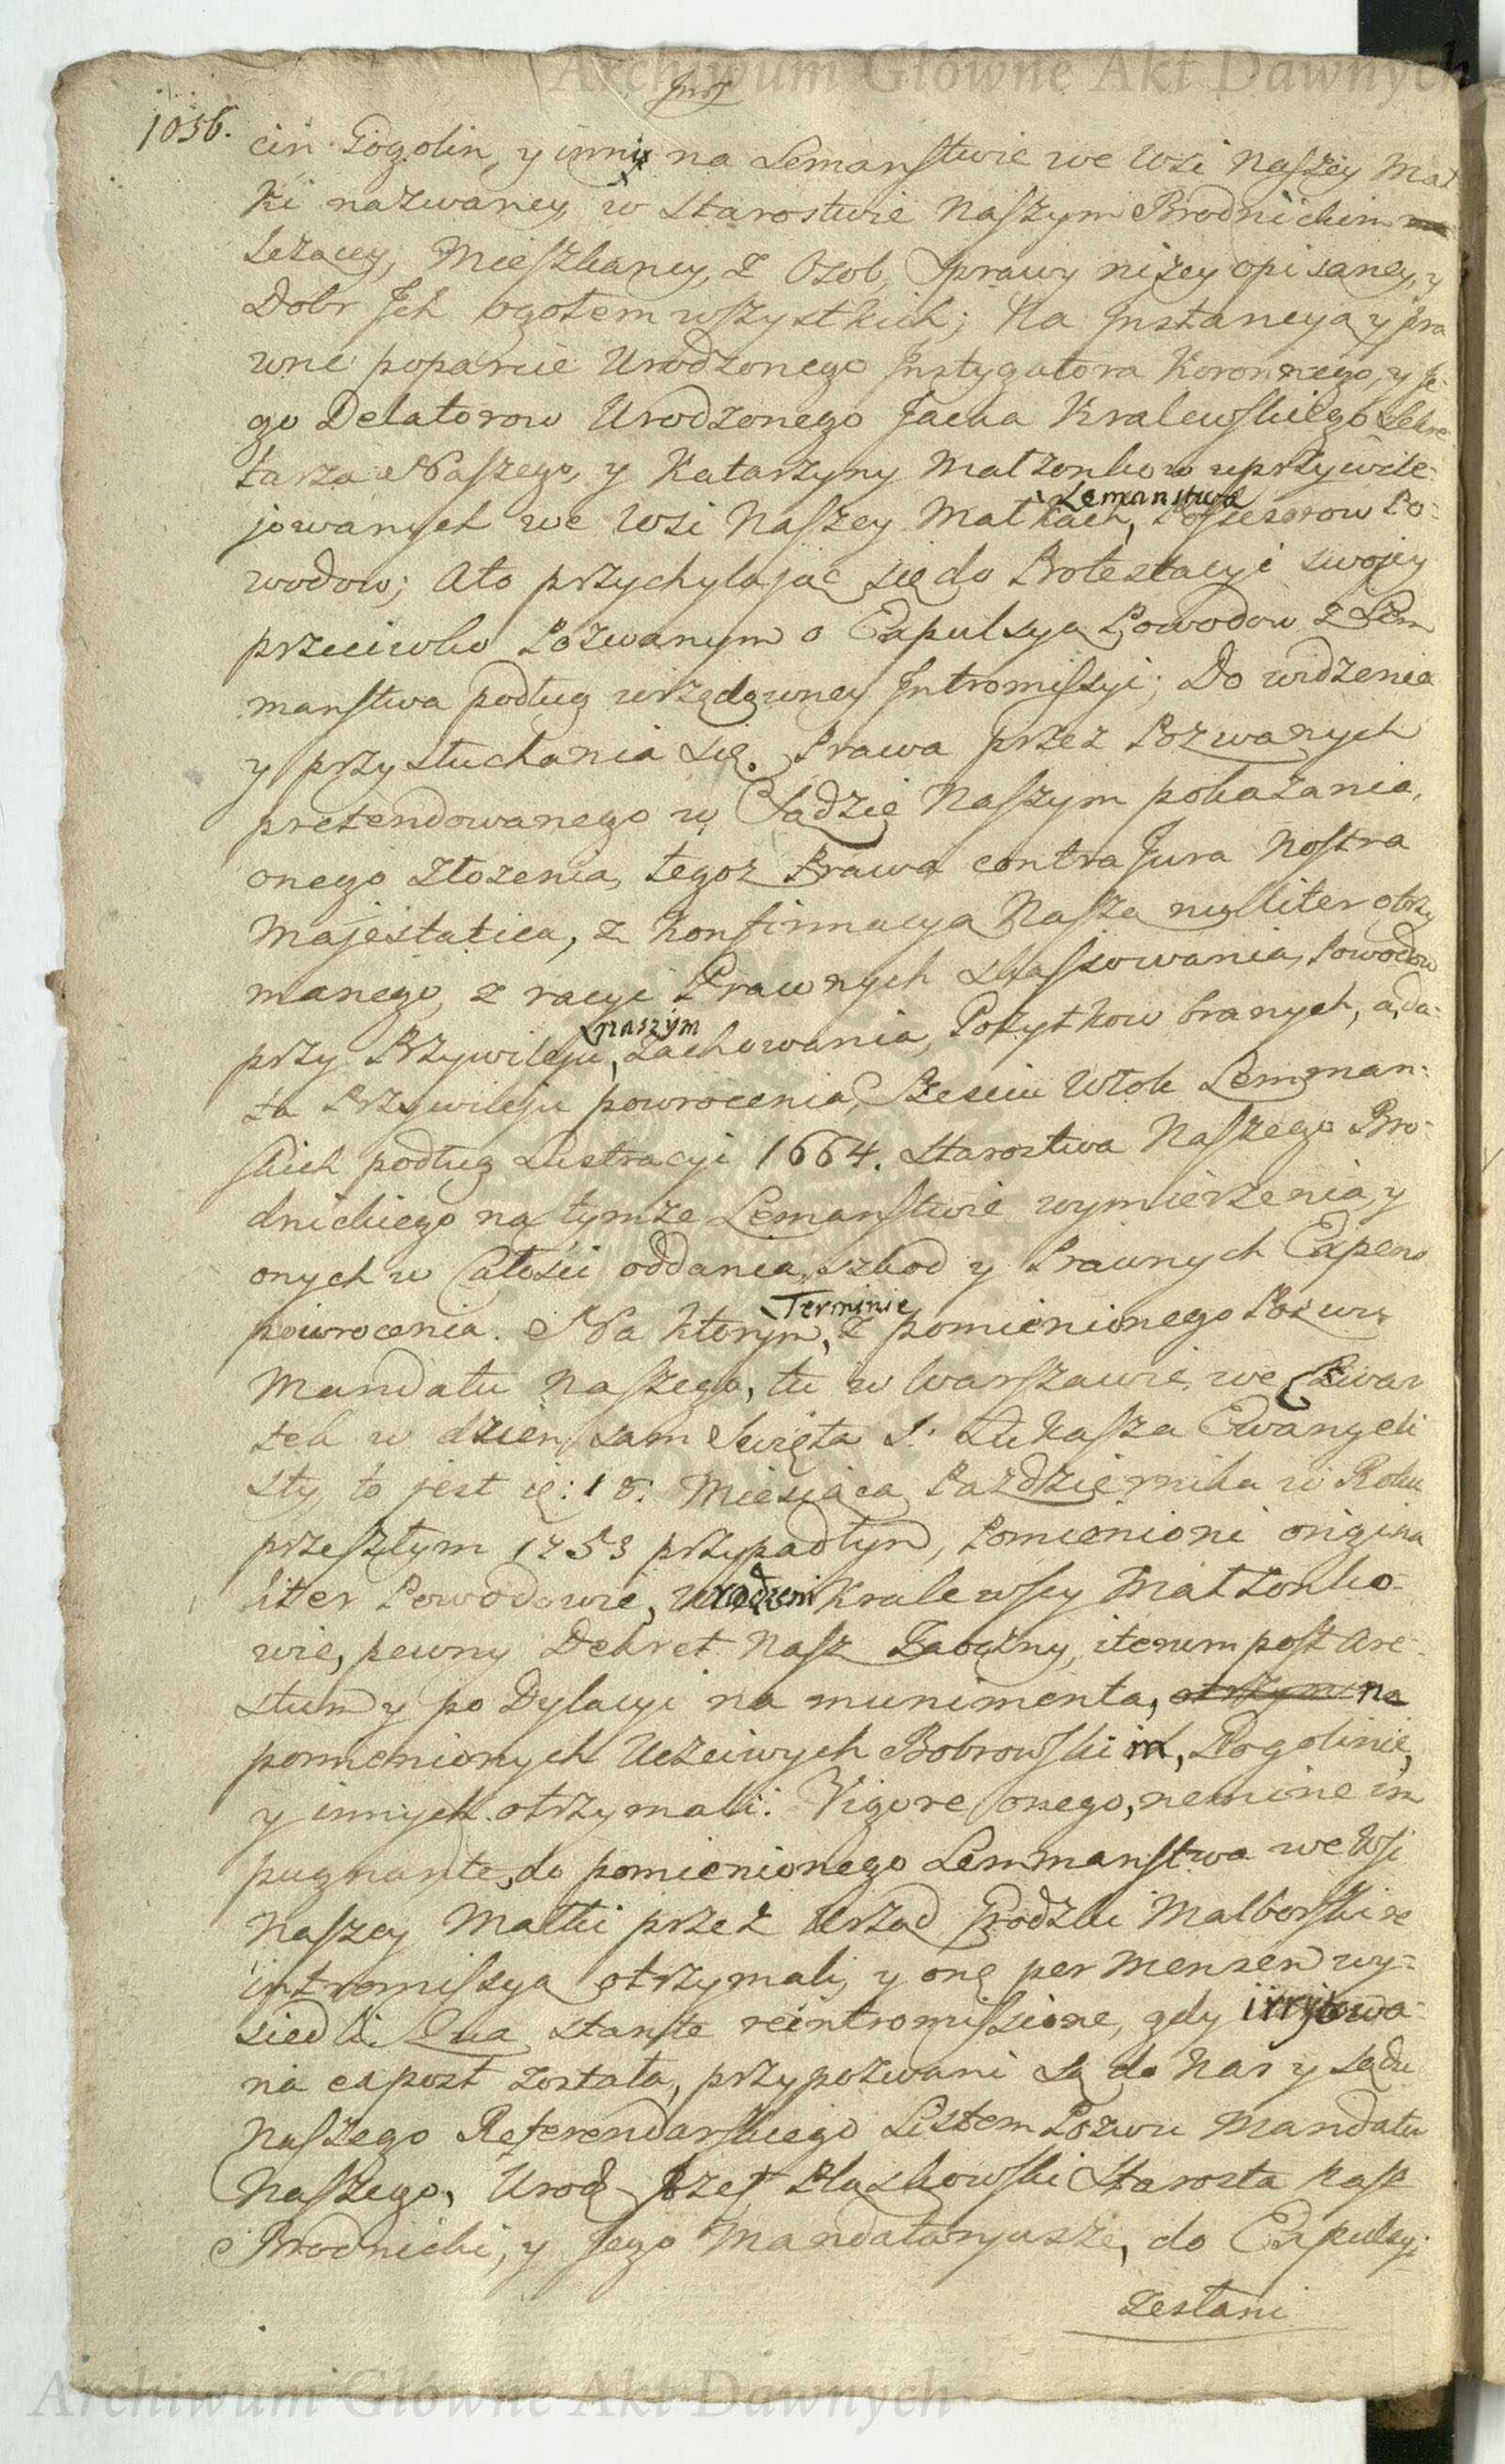 Archiwum Główne Akt Dawnych
1056.
cin Gogolin, y inni na Lemanstwie we Wsi Naszey Mat
ki nazwaney, w Starostwie Naszym Brodnickim
Leżącey, Mieszkancy, z Osob, Sprawy niżey opisaney, y
Dobr Jch ogołem wszystkich; Na Jnstancyą y pra
wne poparcie Urodzonego Jnstygatora Koronnego, y Je-
go Delatorow Urodzonego Jacka Kralewskiego Sekre
tarza Naszego, y Katarzyny Małżonkow uprzywile-
Lemanstwa
jowanych we Wsi Naszey Matkach, Possesorow Po-
wodow; Ato przychylając się do Protestacyi swojey
przeciwko Pozwanym o Expulsyą Powodow z Lem
manstwa podług urzędowney Jntromissyi; Do widzenia
y przysłuchania się. Prawa przez Pozwanych
pretendowanego w Sądzie Naszym pokazania,
onego złożenia, tegoż Prawa contra Jura Nostra
Majestatica, z Konfirmacyą Naszą nulliter otrzy
manego, z racyi Prawnych skassowania, Powodow
naszym
przy Przywileju, zachowania, Pożytkow branych, a da-
ta Przywileju powrocenia, Szesciu Włok Lemman-
skich podług Lustracyi 1664. Starostwa Naszego Bro-
dnickiego na tymże Lemanstwie wymierzenia, y
onych w Całosci oddania, szkod y Prawnych Expens
Terminie
powrocenia. Na ktorym, z pomienionego Pozwu
Mandatu Naszego, tu w Warszawie, we Czwar
tek w dzien sam Swięta S. Łukasza Ewangeli
sty, to jest 18. Miesiąca Pazdziernika w Roku
przeszłym 1753 przypadłym, Pomienioni origina
liter Powodowie, Urodzeni Kralewscy Małżonko-
wie, pewny Dekret Nasz Zaoczny, iterum post Are-
stum y po Dylacyi na munimenta, na
pomienionych Uczciwych Bobrowskim, Gogolinie,
y innych otrzymali. Vigore onego, nemine im
pugnante, do pomienionego Lemmanstwa we Wsi
Naszey Matki przez Urząd Grodzki Malborski re
intromissyą otrzymali, y onę per Mensem wy-
siedli. Qua stante reintromissione, gdy irrytowa-
na expost została, przypozwani są do Nas y Sądu
Naszego Referendarskiego Listem Pozwu Mandatu
Naszego, Urod. Jozef Pląskowski Starosta Nasz
Brodnicki, y Jego Mandataryusze, do Expulsyi
Zesłani
Archiwum Główne Akt Dawnych